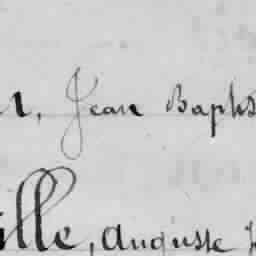 r, Jean Baptis
ille, Auguste